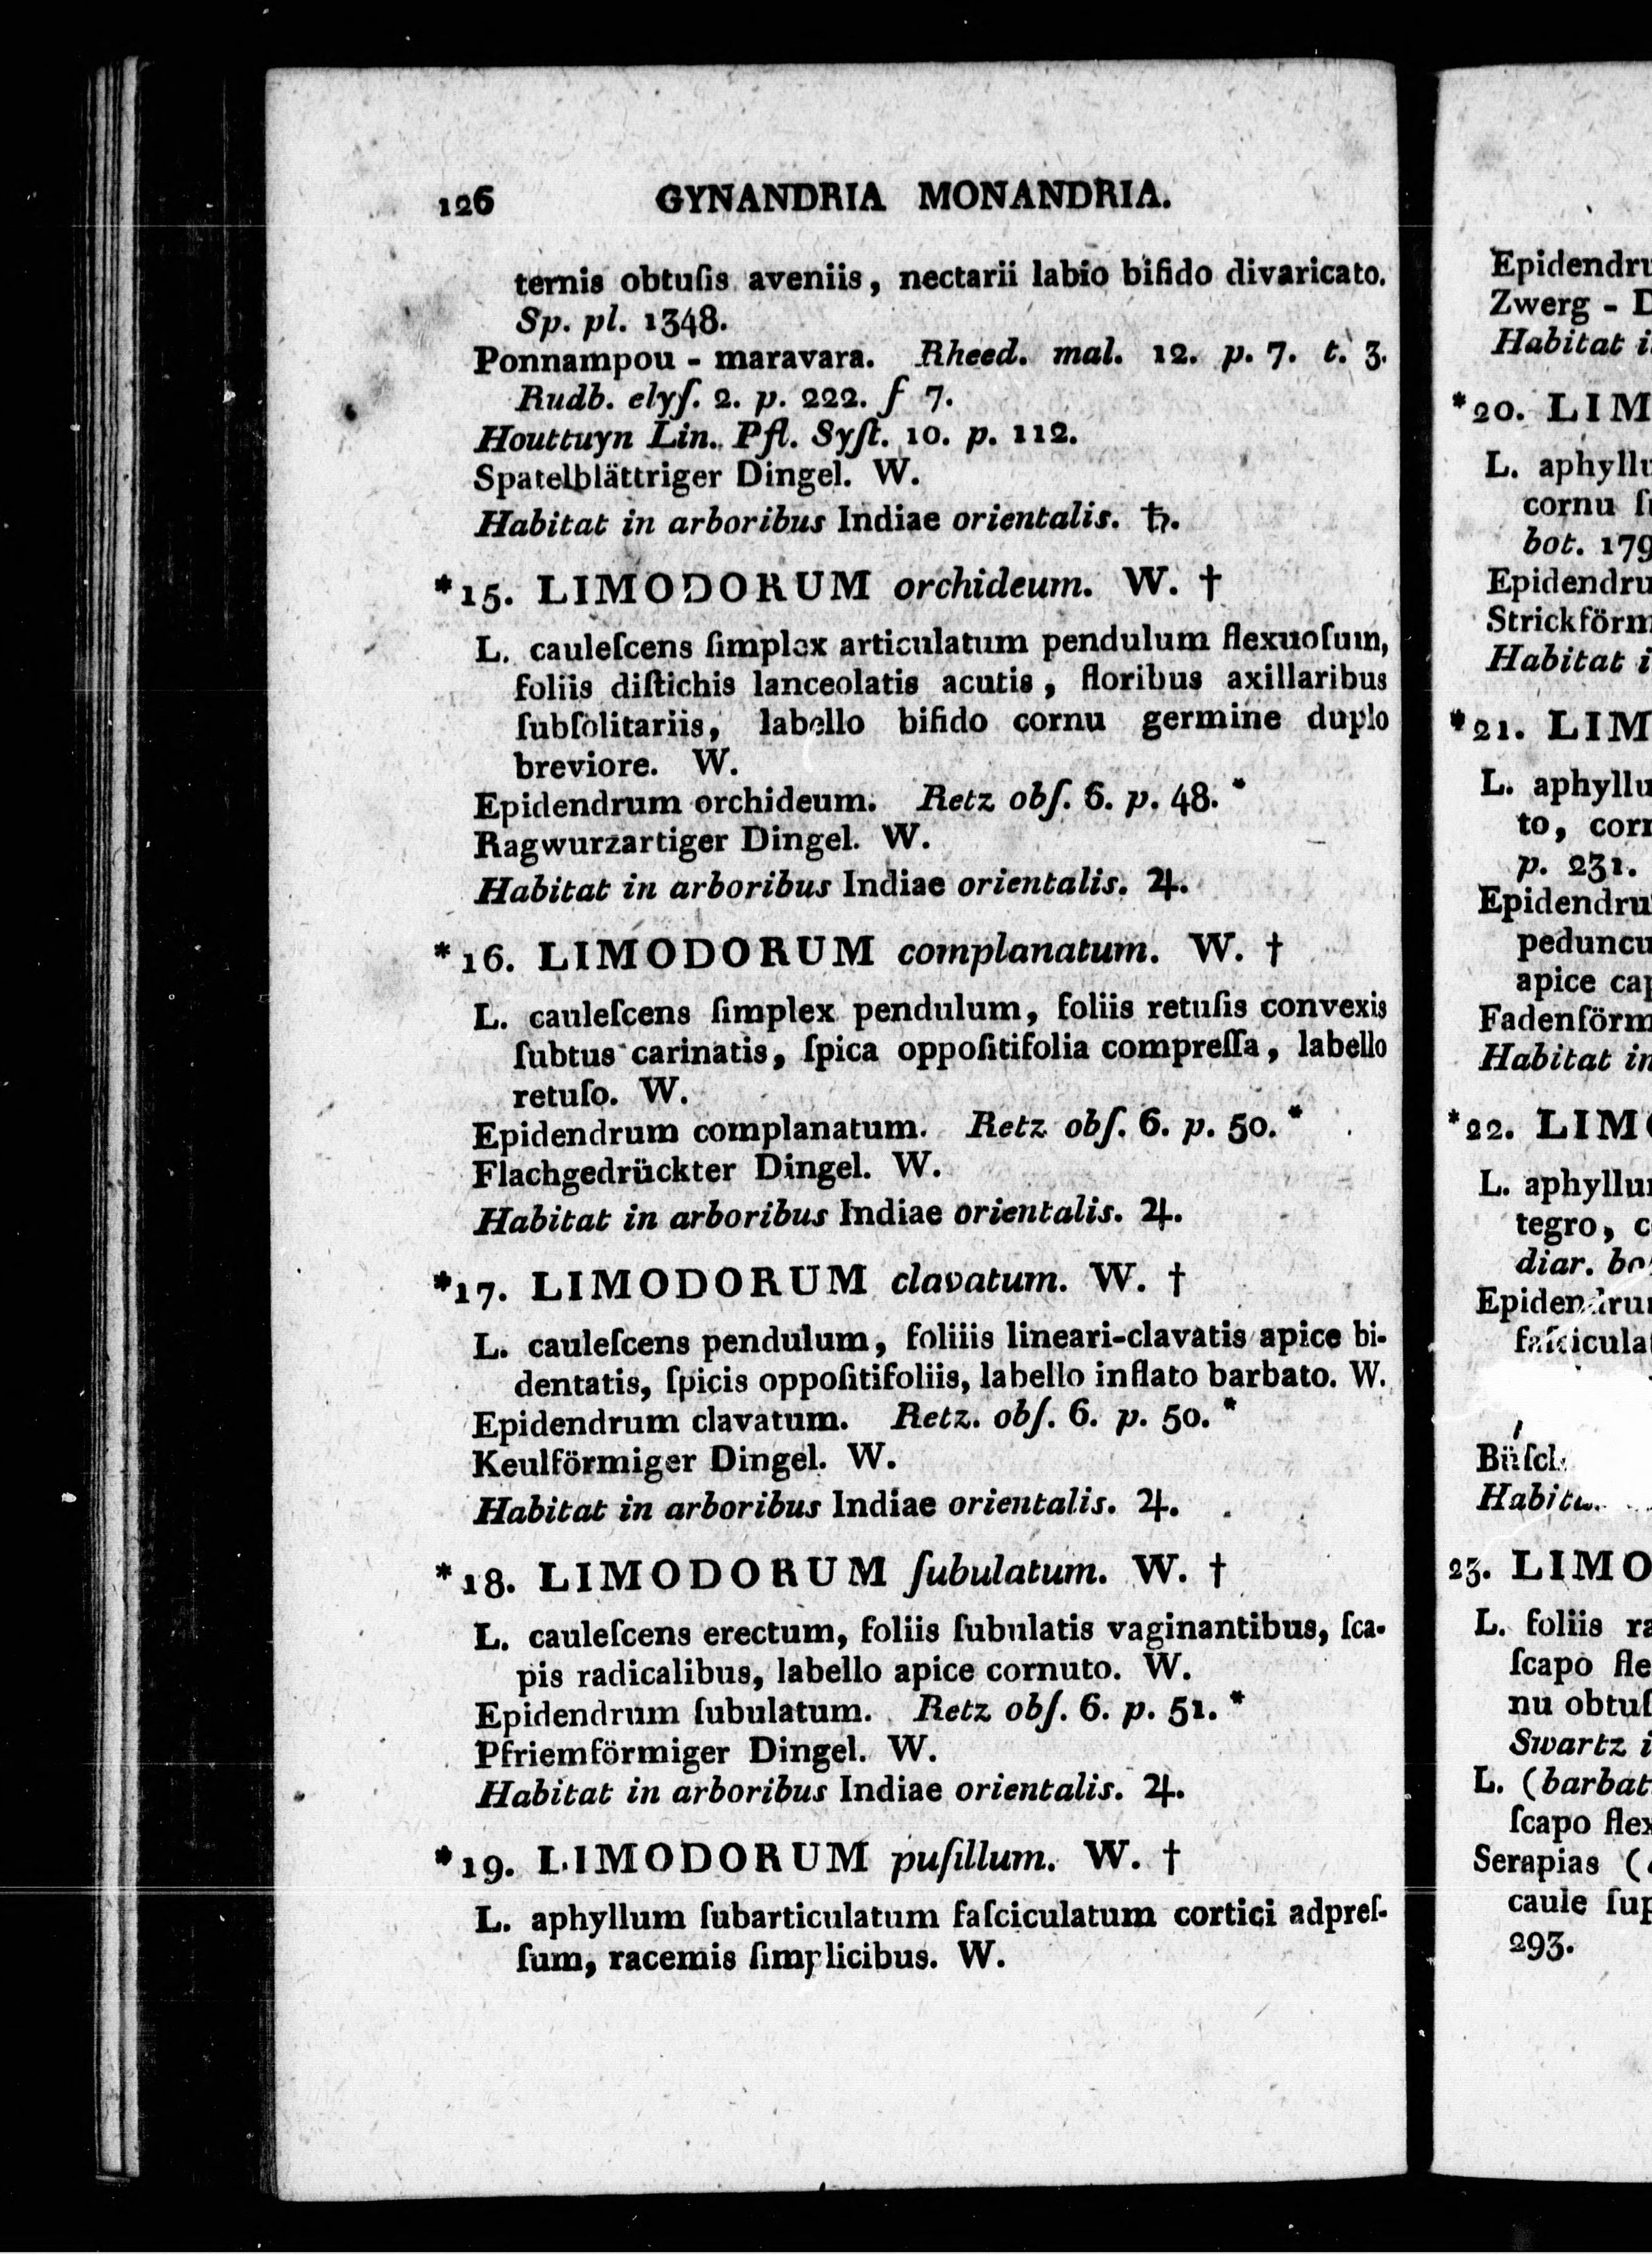 126 GYNANDRIA MONANDRIA.
ternis obtuſis aveniis, nectarii labio bifido divaricato.
Sp. pl. 1348.
Ponnampou - maravara. Rheed. mal. 12. p. 7. t. 3.
Rudb. elyſ. 2. p. 222. f 7.
Houttuyn Lin. Pfl. Syſt. 10. p. 112.
Spatelblättriger Dingel. W.
Habitat in arboribus Indiae orientalis. ♄.
*15. LIMODORUM orchideum. W. †
L. cauleſcens ſimplex articulatum pendulum flexuoſum,
foliis diſtichis lanceolatis acutis, floribus axillaribus
ſubſolitariis, labello bifido cornu germine duplo
breviore. W.
Epidendrum orchideum. Retz obſ. 6. p. 48. *
Ragwurzartiger Dingel. W.
Habitat in arboribus Indiae orientalis. ♃.
*16. LIMODORUM complanatum. W. †
L. cauleſcens ſimplex pendulum, foliis retuſis convexis
ſubtus carinatis, ſpica oppoſitifolia compreſſa, labello
retuſo. W.
Epidendrum complanatum. Retz obſ. 6. p. 50. *
Flachgedrückter Dingel. W.
Habitat in arboribus Indiae orientalis. ♃.
*17. LIMODORUM clavatum. W. †
L. cauleſcens pendulum, foliiis lineari-clavatis apice bi-
dentatis, ſpicis oppoſitifoliis, labello inflato barbato. W.
Epidendrum clavatum. Retz. obſ. 6. p. 50. *
Keulförmiger Dingel. W.
Habitat in arboribus Indiae orientalis. ♃.
*18. LIMODORUM ſubulatum. W. †
L. cauleſcens erectum, foliis ſubulatis vaginantibus, ſca-
pis radicalibus, labello apice cornuto. W.
Epidendrum ſubulatum. Retz obſ. 6. p. 51. *
Pfriemförmiger Dingel. W.
Habitat in arboribus Indiae orientalis. ♃.
*19. LIMODORUM puſillum. W. †
L. aphyllum ſubarticulatum faſciculatum cortici adpreſ-
ſum, racemis ſimplicibus. W.
Epidendru
Zwerg - D
Habitat i
*20. LIM
L. aphyllu
cornu ſu
bot. 179
Epidendru
Strickförm
Habitat i
*21. LIM
L. aphyllu
to, corn
p. 231.
Epidendru
peduncu
apice cap
Fadenförm
Habitat in
*22. LIMO
L. aphyllum
tegro, c
diar. bo
Epidendrum
faſciculat
Büſch
Habita
23. LIMO
L. foliis ra
ſcapo fle
nu obtuſ
Swartz i
L. (barbat
ſcapo flex
Serapias (
caule ſup
293.